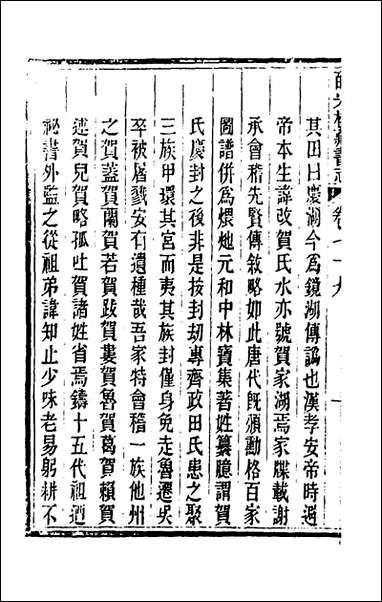 皕宋樓藏書志 卷七十九 一
其田曰慶湖今為鏡湖傳譌也漢孝安帝時避
帝本生諱改賀氏水亦號賀家湖焉家牒載謝
承會稽先賢傳敘略如此唐代旣頒勳格百家
圖譜倂為煨灺元和中林寶集著姓纂臆謂賀
氏慶封之後非是按封刼專齊政田氏患之聚
三族甲環其宮而夷其族封僅身免走魯遷吳
卒被屠戮安有遺種哉吾家特會稽一族他州
之賀蓋賀蘭賀若賀跋賀婁賀魯賀葛賀賴賀
述賀兒賀略孤吐賀諸姓省焉鑄十五代祖迺
祕書外監之從祖弟諱知止少味老易躬耕不